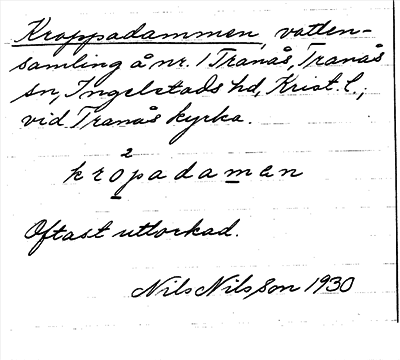 Kroppadammen, vatten-
samling å nr. 1 Tranås, Tranås
sn, Ingelstads hd, Krist. l.,
vid Tranås kyrka.
2
kropadamen
Oftast uttorkad.
Nils Nilsson 1930